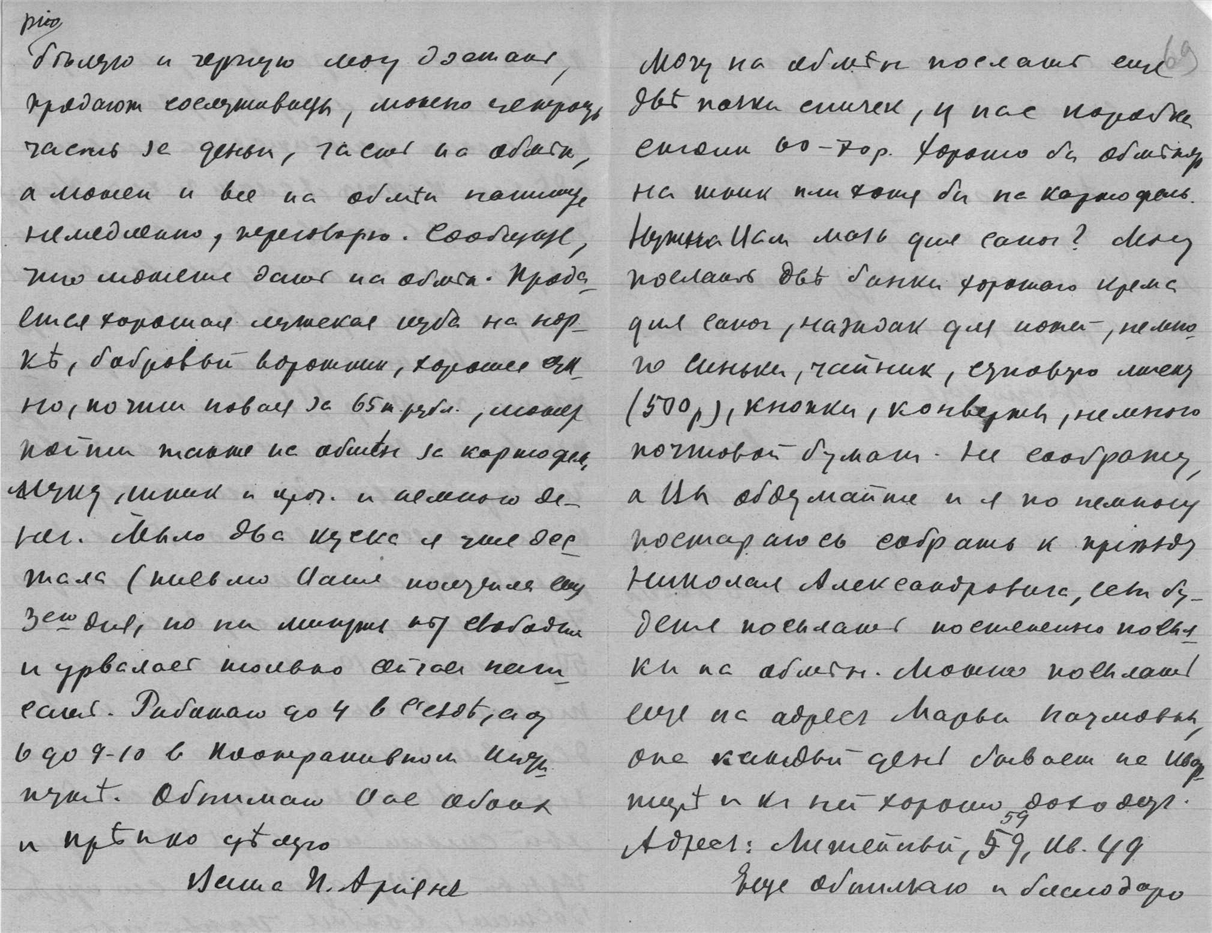 рiю
бѣлую и черную могу достать,
продают сослуживцы, можно
часть за деньги, часть на обмѣн,
а может и все на обмѣн напишите
немедленно, переговорю. Сообщите,
что можете дать на обмѣн. Прода-
ется хорошая мужская шуба на нор-
кѣ, бобровый воротник, хорошее сук-
но, почти новая за 65 т рубл., может
пойти также на обмѣн за картофель,
муку, шпик и проч. и немного де-
нег. Мыло два куска я уже дос-
тала (письмо Ваше получила
3его дня, но ни минуты нѣт свободы
и урвалась только сейчас напи-
сать. Работаю до 4 в а от
6 до 9-10 в Кооперативном Инсти-
тутѣ. Обнимаю Вас обоих
и крѣпко цѣлую
Ваша
69
Могу на обмѣн послать еще
двѣ пачки спичек, у нас коробка
стоит 60-70р. Хорошо бы обмѣнять
на шпик или хотя бы на картофель.
Нужна Вам мазь для сапог? Могу
послать двѣ банки хорошаго крема
для сапог, наждак для ножей, немно-
го синьки, чайник, суповую миску
(500р), кнопки, конверты, немного
почтовой бумаги. Не соображу,
а Вы обдумайте и я по немногу
постараюсь собрать к приѣзду
Николая Александровича, если бу-
дете посылать постепенно посыл-
ки на обмѣн. Можно посылать
еще на адрес Марьи
она каждый день бывает на квар-
тирѣ и к ней хорошо доходят.
59
Адрес: Литейный, 59, кв. 49
Еще обнимаю и благодарю